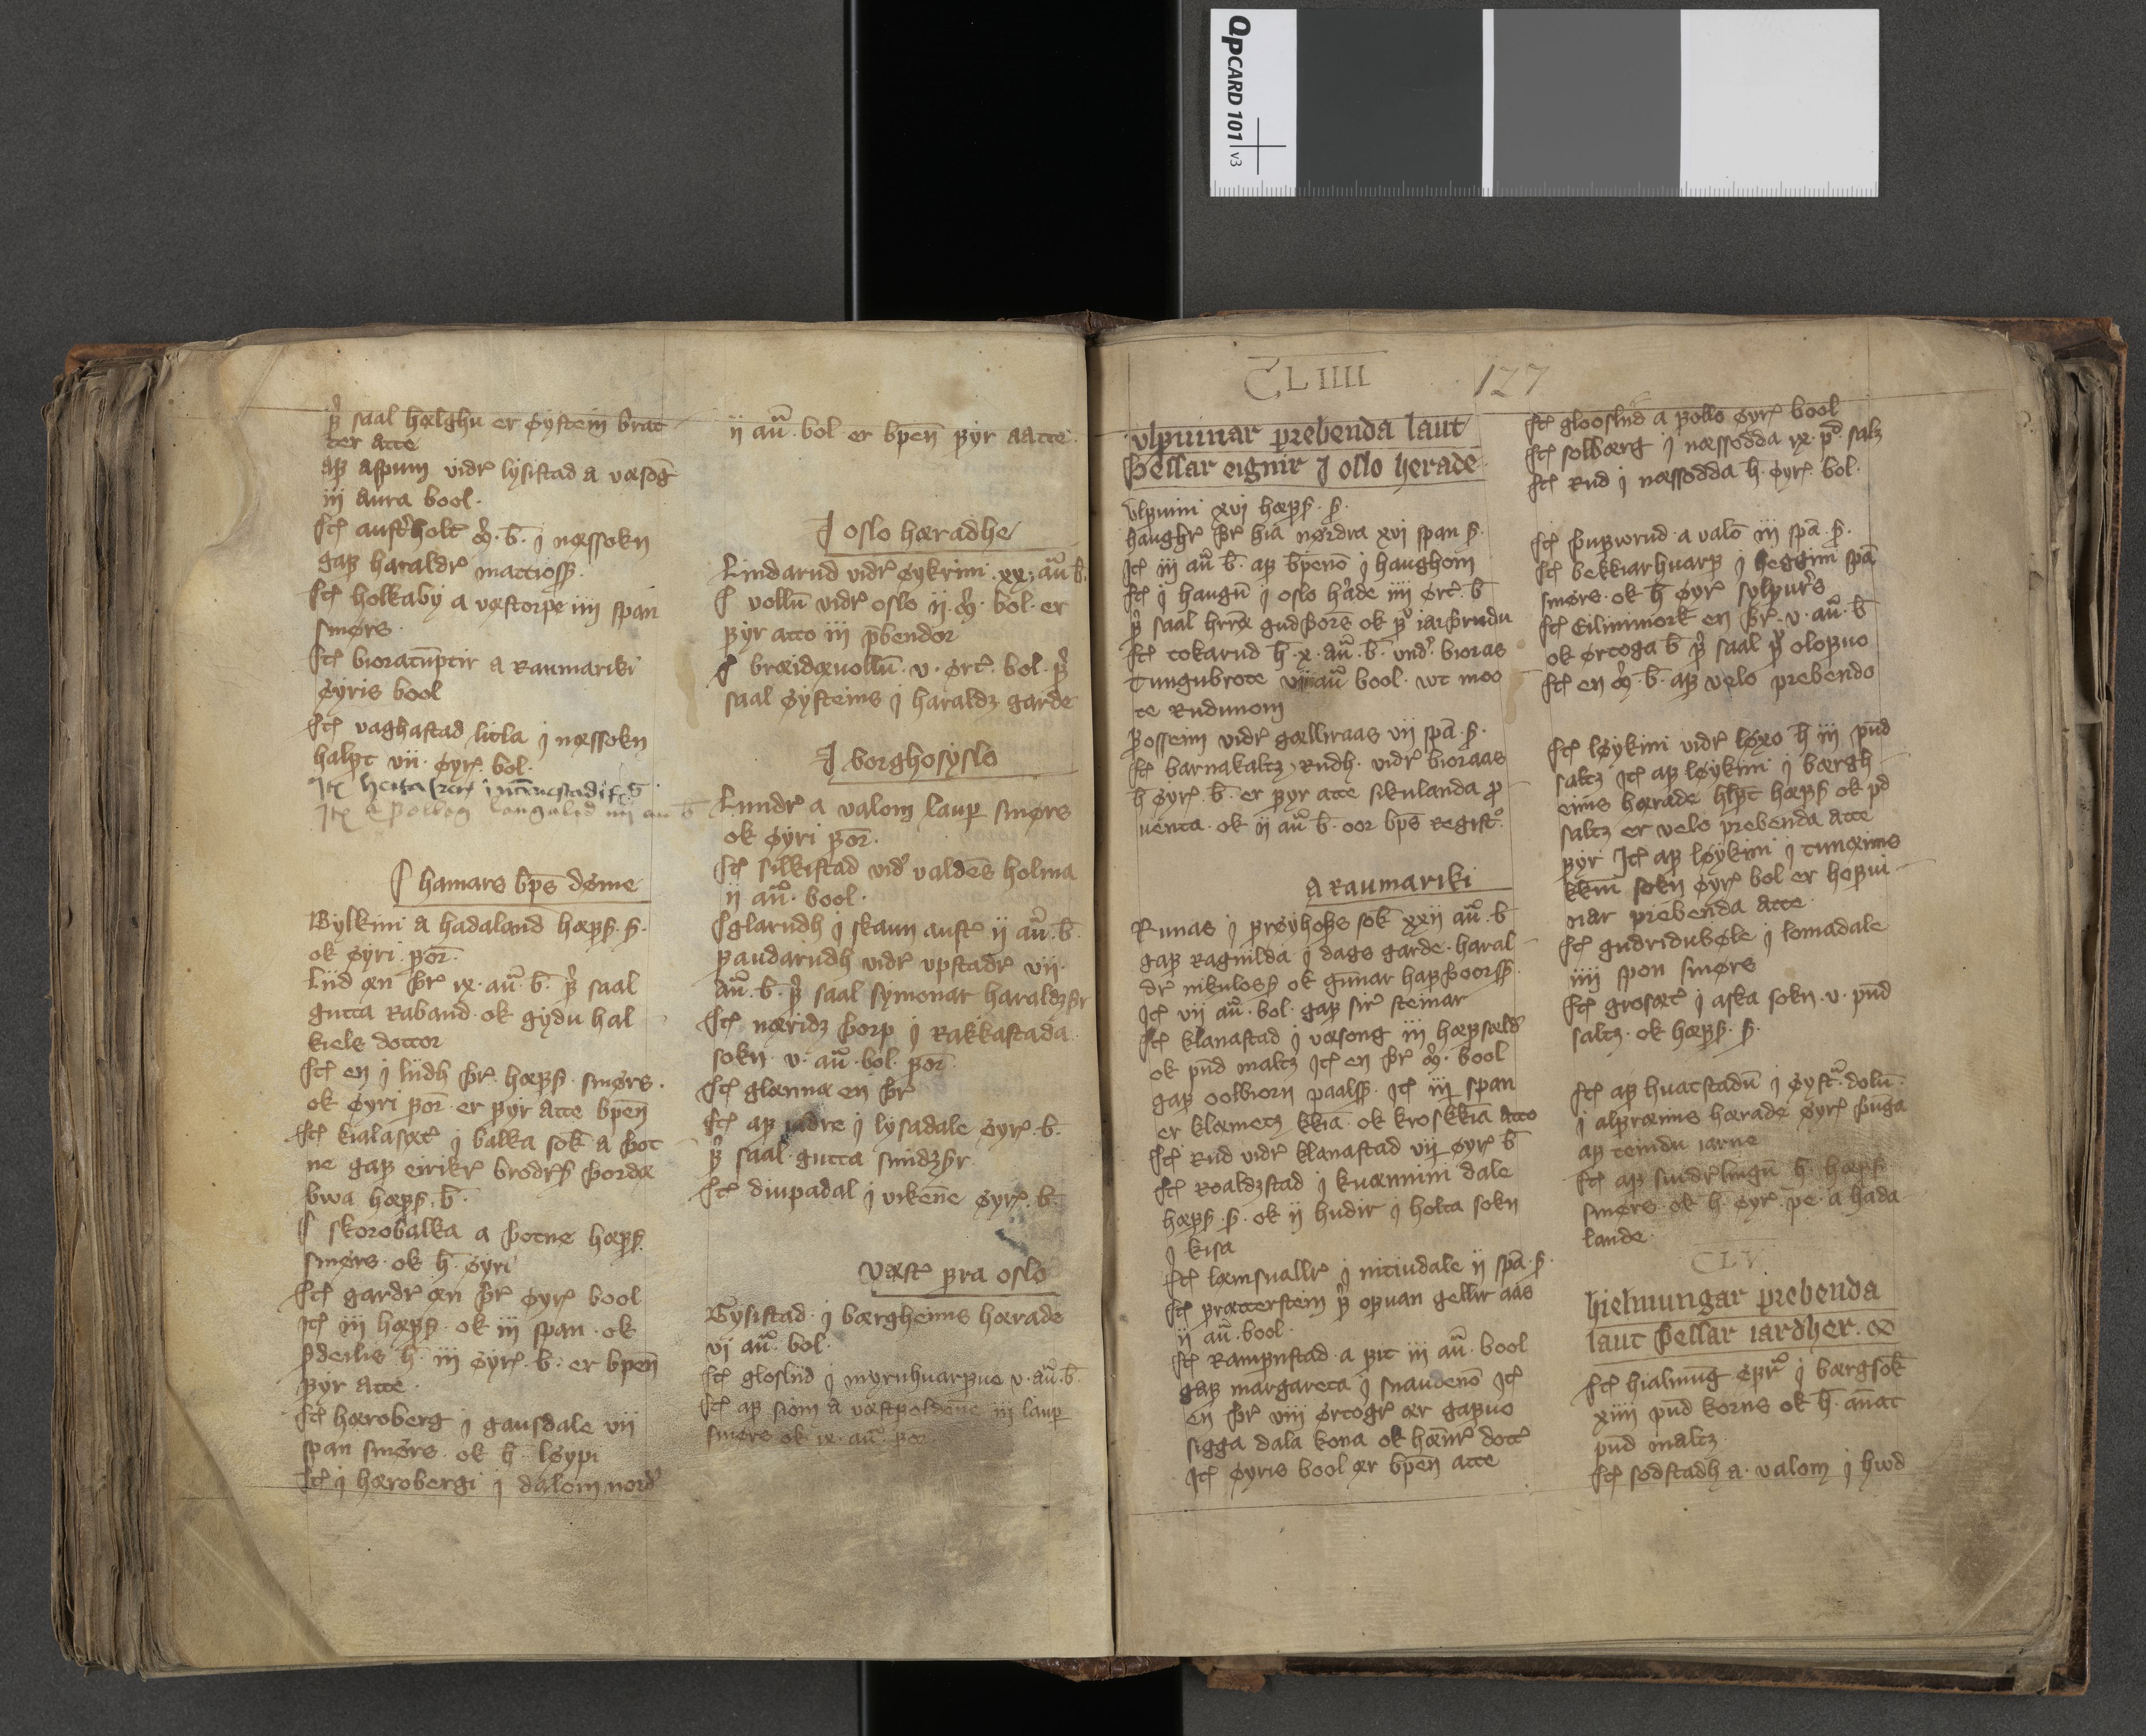 QPCARD 101 v3
fꝛ saal hælghu er øystein brat
ter atte
af aspum vidr lysistad a væsōg
iij aura bool.
Jtē austrholt m. b. j næssokn
gaf haraldr mattioss.
Jtē holkaby a væstorpe iiij span
smørs.
Jtē bioratuptir a Raumariki
øyris bool
Jtē vaghastad litla j næssokn
halft vii. øyr. bol.
j hamars bps døme
Bylkini a hadaland hæfs. s.
ok øyri for.
Liid æn þr ix. aur. b. fꝛ saal
gutta Raband. ok gydu hal
kiels dottor
Jtē en j liidh þr hæfs. smørs.
ok øyri for. er fyr atte bpen
Jtē kialasæt j balka sok a þot
ne gaf eirikr brodrs þordæ
bwa hæfs. b.
J skorobalka a þotne hæfs
smørs. ok h. øyri
Jtē gardr æn þr øyr bool
Jtē iij hæfs. ok iij span. ok
fdeilis h. iij øyr. b. er bpen
fyr atte.
Jtē hæroberg j gausdale vii
span smørs. ok h løypi
Jtē j hærobergi j dalom nord
ij aur. bol er bpen fyr aatte.
J oslo hæradhe
Lindarud vidr øykrini. xx. aur b.
J vollu vidr oslo ij. m. bol. er
fyr atto iij pbendor
J bræidæuollu. v. ort. bol. fꝛ
saal øysteins j haraldz garde
J borghosyslo
Lundr a valom laup smørs
ok øyri for.
Jtē silkistad vidr valdens holma
ij aur. bool.
J glarudh j skaun aust ij aur. b.
faudarudh vidr upstadr vij.
aur. b. fꝛ saal symonar haraldzsr
Jtē næridz þorp j Rakkastada
sokn. v. aur. bol. for.
Jtē glænna en þr
Jtē af iadre j lysadale øyr. b.
fꝛ saal gutta smidzsr
Jtē diupadal j vikene øyr. b.
væst fra oslo
Gysistad. j bærgheims hærade
vj aur. bol.
Jtē gloslud j myrnhuarfue v. aur. b.
Jtē af siom a væstfoldonne iij laup
smørs ok ix. aur. for
CLIIII
127
vlpuinar prebenda laut
þessar eignir j oslo herade
vlpuini xvj hæfs. s.
haughr þr hia nørdra xvj span s.
Jtē iij aur b. af bpeno j haughom
Jtē j haugu j oslo hade iiij ort. b
fꝛ saal hrræ gudþors ok fꝛ iarþrudu
Jtē tokarud h. x. aur. b. und. bioras
Tungubrote vij aur bool. wt moo
te Rudunom
fosseim vidr gælliraas vij spa. s.
Jtē barnakaltz Rudh. vidr bioraas
h øyr. b. er fyr atte sikulanda p
uenta. ok ij aur b. oor bps Regist.
a Raumariki
Runas j frøyhofs sok xxij aur. b
gaf Ragnilda j dags garde. haral
dr nikuloss ok gunar hafþoorss
Jtē vij aur. bol. gaf sir steinar
Jtē klanastad j væsong iij hæfsæld
ok pud maltz Jtē en þr m. bool
gaf oolbiorn paalss. Jtē iij span
er klæmetz kkia. ok kroskkia atto
Jtē Rud vidr klanastad vij øyr b
Jtē Roaldzstad j kuænnini dale
hæfs. s. ok ij hudir j holta sokn
j kisa
Jtē læmsuallr j nitiudale ij spa. s.
Jtē frætterstein fꝛ ofuan gellir aas
ij aur. bool.
Jtē Rampnstad. a fit iij aur. bool
gaf margareta j snaudeno Jtē
en þr viij ortogr ær gafuo
sigga dala kona ok hænr dott
Jtē øyris bool ær bpen atte
Jtē glooslud a follo øyr bool
Jtē solbærg j næssodda ix. pd salz
Jtē Rud j næssodda h. øyr. bol.
Jtē þufworud. a valo iij spa. s.
Jtē bekkiarhuarf j heggini spa
smørs. ok h øyr sylfurs
Jtē Eilinmork en þr. v. aur. b
ok ørtoga b fꝛ saal fꝛ olofuo
Jtē en m. b. af velo prebendo
Jtē løykini vidr løxo h iij pud
saltz Jtē af løykini j bærgh
eims hærade hlft hæfs ok pd
saltz er velo prebenda atte
fyr Jtē af løykini j tunæims
kkiu sokn øyr bol er hofui
nar prebenda atte.
Jtē gudridubøle j lomadale
iiij spon smørs
Jtē grosæt j aska sokn. v. pud
saltz. ok hæfs. s.
Jtē af huatstadu j øyst. dolu.
j alfræims hærade øyr þunga
af teindu iarne
Jtē af suidrlingu h. hæfs
smørs. ok h. øyr fe. a hada
lande.
CLV
hielmungar prebenda
laut þessar iardher.
Jtē hialmung efr j bærgsok
xiiij pud korns ok h. annat
pud maltz.
Jtē sodstadh a. valom j hwd